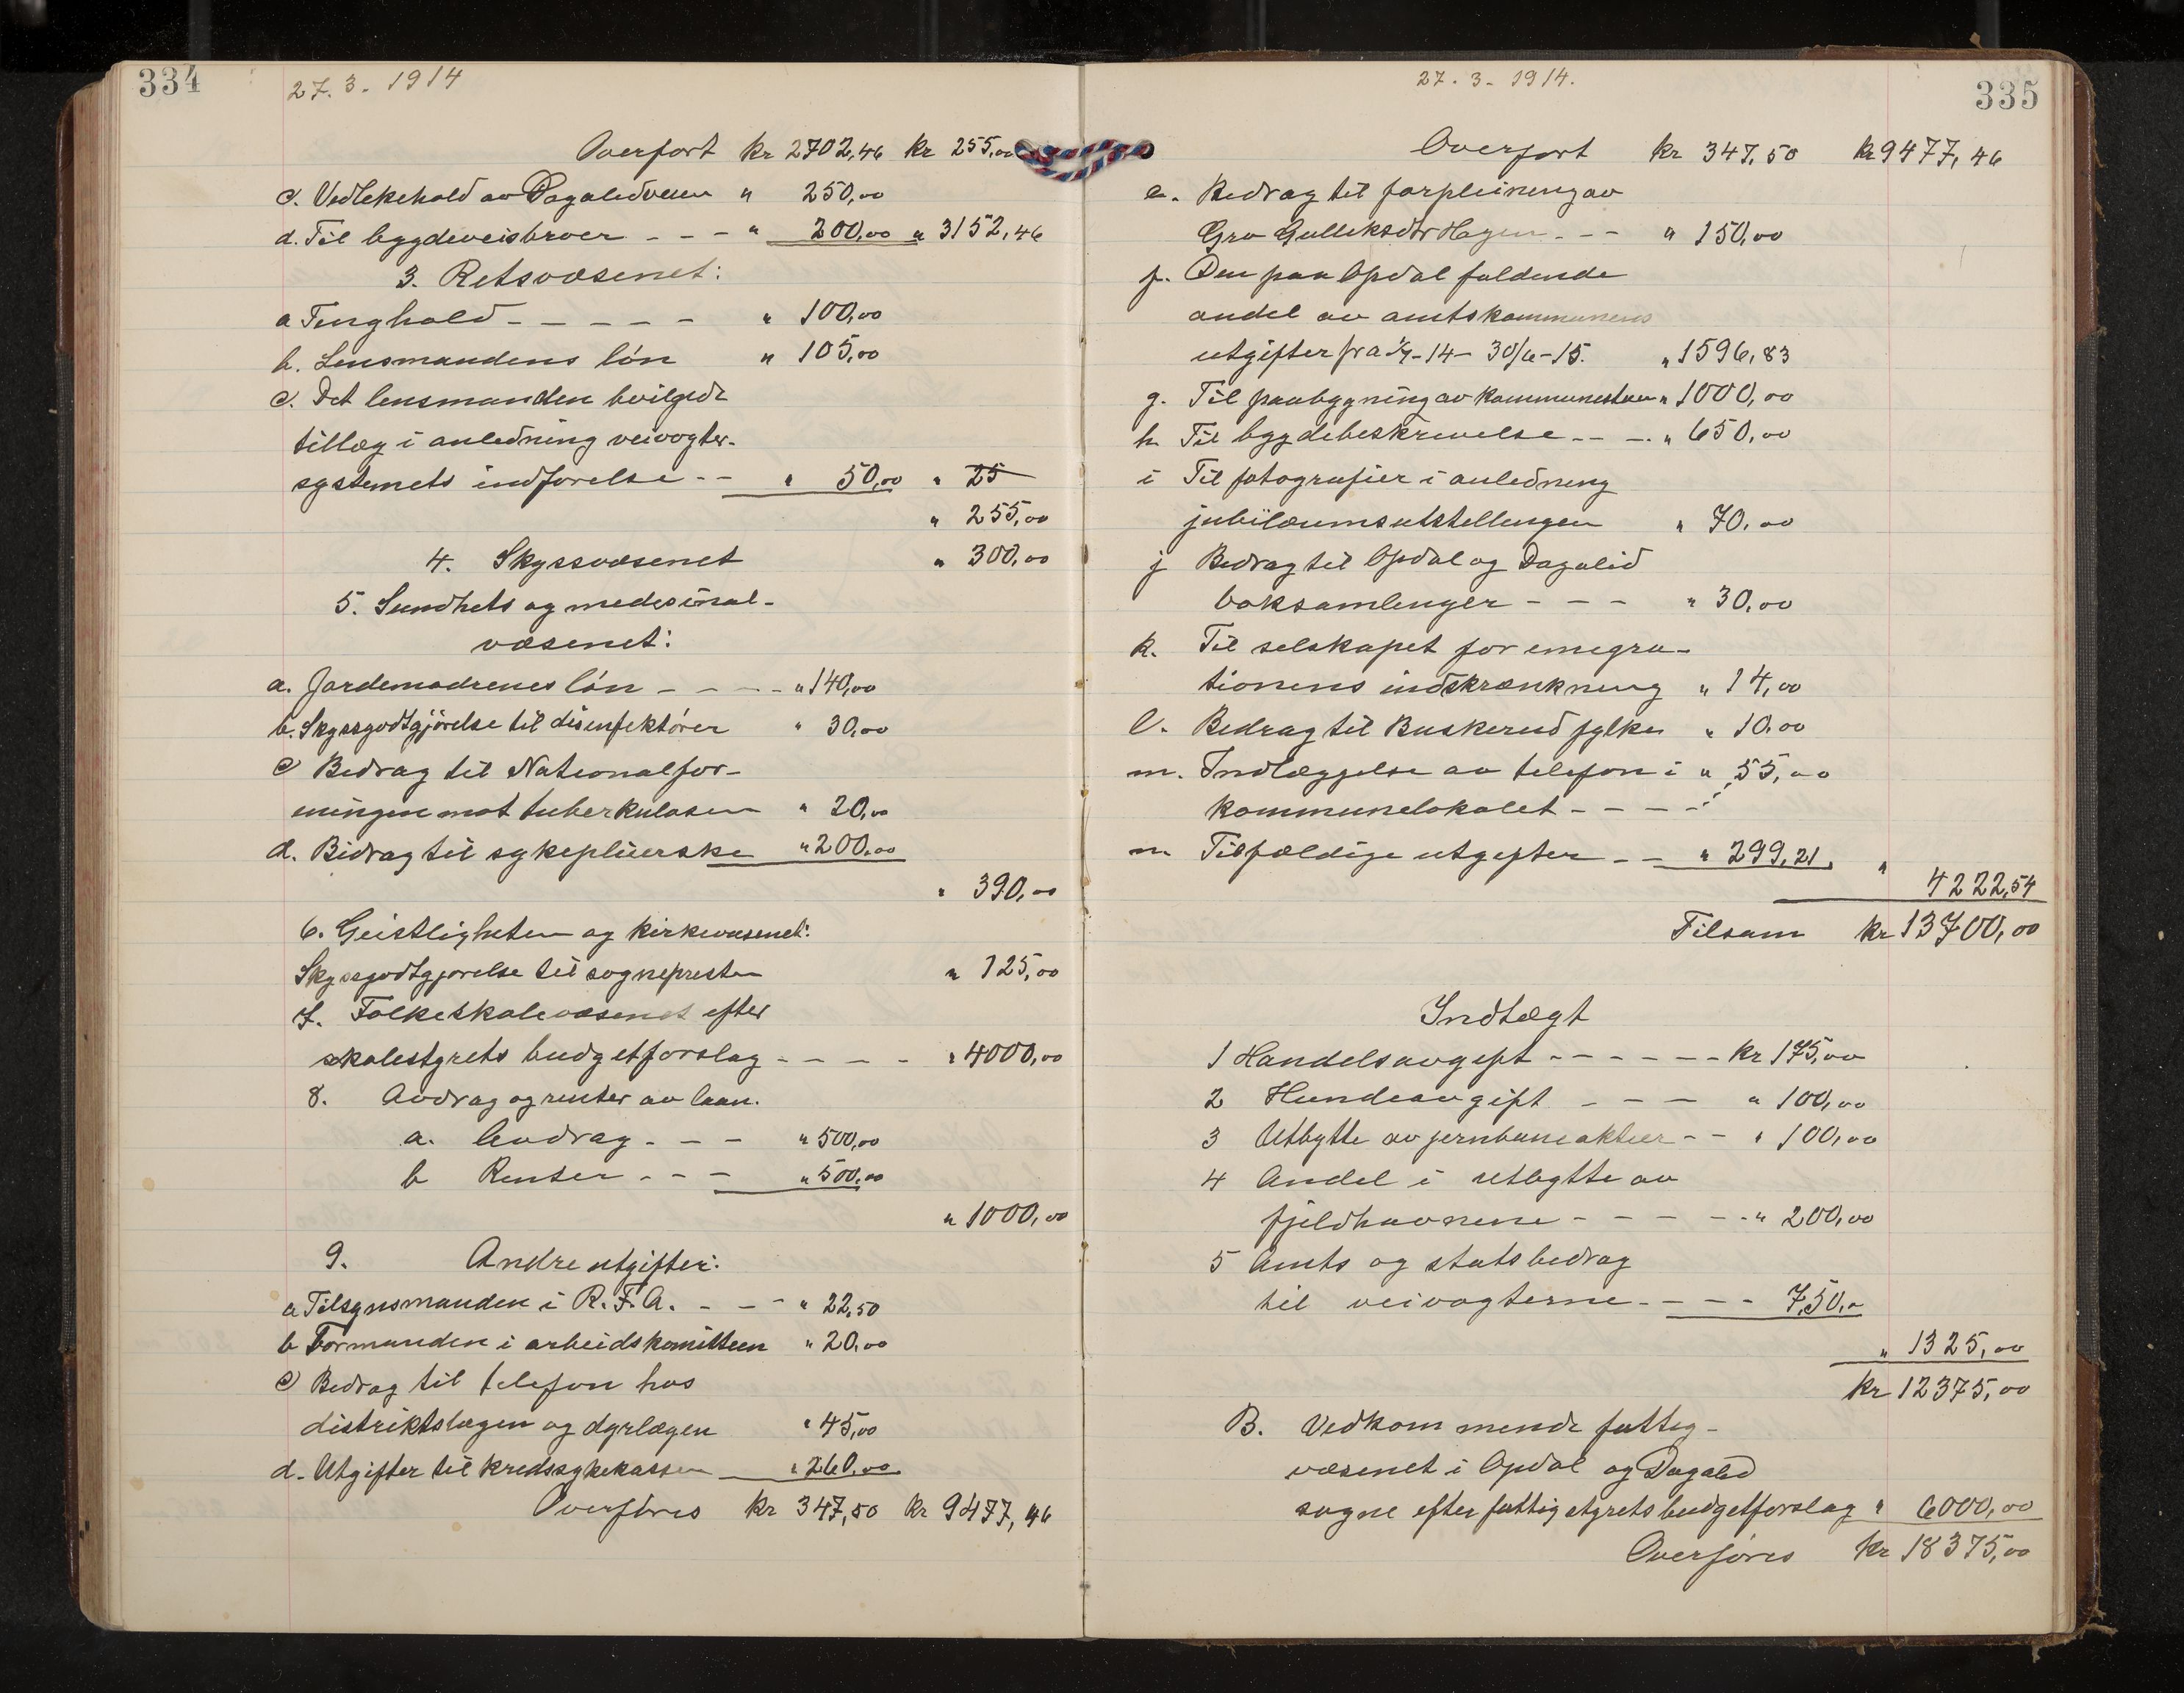 334
27. 3. 1914
Overført kr 2702,46 kr 255,00
c. Vedlekehold av Dagalidveien " 250,00
d. Til bygdeveisbroer - - - " 200,00 " 3152,46
3. Retsvæsenet:
a Tinghold - - - - - " 100,00
b. Lensmandens løn " 105,00
c. Det lensmanden bevilgede
tillæg i anledning veivogter-
systemets indførelse - - " 50,00 " 25
" 255,00
4. Skyssvæsenet " 300,00
5. Sundhets og medisinal-
væsenet:
a. Jordemødrenes løn - - - - " 140,00
b. Skyssgodtgjørelse til disinfektører " 30,00
c Bidrag til Nationalfor-
eningen mot tuberkulosen " 20,00
d. Bidrag til sykepleierske " 200,00
" 390,00
6. Geistligheten og kirkevæsenet:
Skyssgodtgjørelse til sognepresten " 125,00
7. Folkeskolevæsenet efter
skolestyrets budgetforslag - - - - " 4000,00
8. Avdrag og renter av laan.
a. Avdrag - - - " 500,00
b Renter - - - " 500,00
" 1000,00
9. Andre utgifter:
a Tilsynsmanden i R.F.A. - - - " 22,50
b Formanden i arbeidskomitteen " 20,00
c Bidrag til telefon hos
distriktslægen og dyrlægen " 45,00
d. Utgifter til kredssykekassen " 260,00
Overføres kr 347,50 kr 9477,46
27. 3. 1914.
335
Overført kr 347,50 kr 9477,46
e. Bidrag til forpleining av
Gro Gulleksdtr Hagen - - - " 150,00
f. Den paa Opdal faldende
andel av amtskommunens
utgifter fra 1/7-14 - 30/6-15. " 1596,83
g. Til paabygning av kommunestuen " 1000,00
h Til bygdebeskrivelse - - - " 650,00
i Til fotografier i anledning
jubilæumsutstellingen " 70,00
j Bidrag til Opdal og Dagalid
boksamlinger - - - " 30,00
k. Til selskapet for emigra-
tionens indskrænkning " 14,00
l. Bidrag til Buskerud fylke " 10,00
m. Indlæggelse av telefon i " 55,00
kommunelokalet - - - -
n Tilfældige utgifter - - " 299,21 "
4222,54
Tilsam kr 13700,00
Indtægt
1 Handelsavgift - - - - - - kr 175,00
2 Hundeavgift - - - " 100,00
3 Utbytte av jernbaneaktier - - " 100,00
4 Andel i utbytte av
fjeldhavnene - - - - - " 200,00
5 Amts og statsbidrag
til veivogterne - - - - 750,-
" 1325,00
kr 12375,00
B. Vedkommende fattig-
væsenet i Opdal og Dagalid
sogne efter fattigstyrets budgetforslag " 6000,00
Overføres kr 18375,00